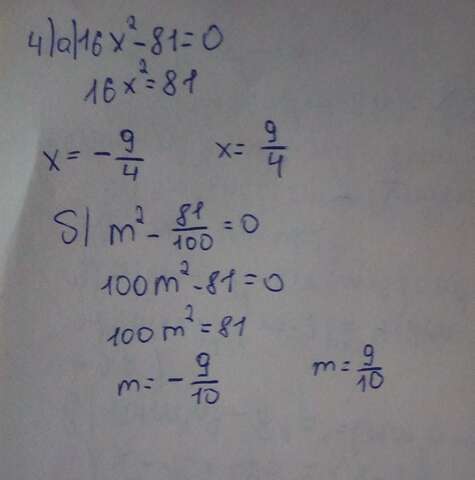 4)а)16x²-81=0
16x²=81
x=-9/4 x=9/4
б) m²-81/100=0
100m²-81=0
100m²=81
m=-9/10 m=9/10